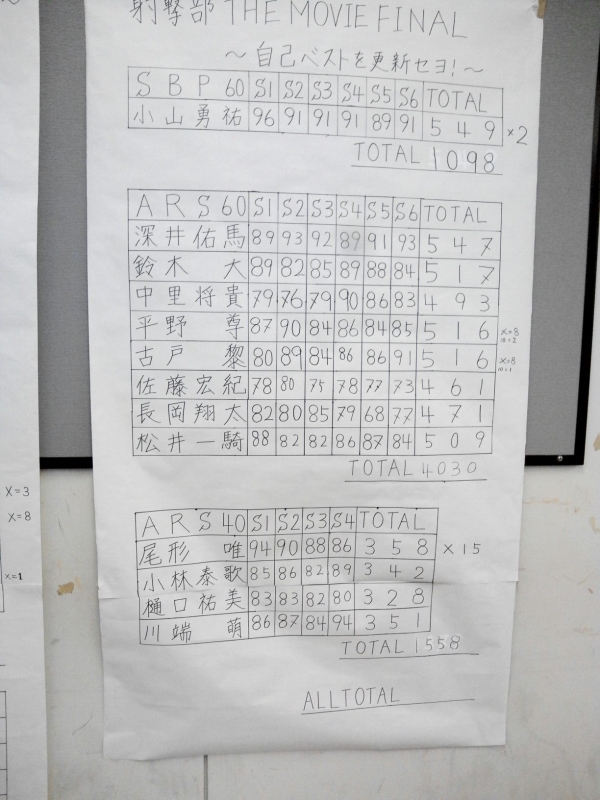 射撃部 THE MOVIE FINAL
～自己ベストを更新セヨ!～
SBP60 S1 S2 S3 S4 S5 S6 TOTAL
小山勇祐 96 91 91 91 89 91 549 ×2
TOTAL 1098
ARS60 S1 S2 S3 S4 S5 S6 TOTAL
深井佑馬 89 93 92 89 91 93 547
鈴木 大 89 82 85 89 88 84 517
中里将貴 79 76 79 90 86 83 493
平野 尊 87 90 84 86 84 85 516 X=8
古戸 黎 80 89 84 86 86 91 516 X=8
佐藤宏紀 78 80 75 78 77 73 461
長岡翔太 82 80 85 79 68 77 471
松井一騎 88 82 82 86 87 84 509
TOTAL 4030
ARS40 S1 S2 S3 S4 TOTAL
尾形 唯 94 90 88 86 358 ×15
小林泰歌 85 86 82 89 342
樋口祐美 83 83 82 80 328
川端 萌 86 87 84 94 351
TOTAL 1558
ALLTOTAL
X=3
X=8
X=1